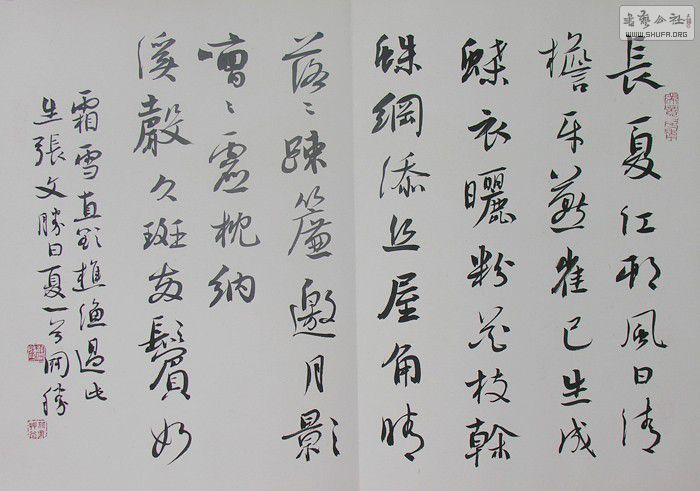 書藝公社
WWW.SHUFA.ORG
長夏江邨風日清
檐牙燕雀已生成
蝶衣曬粉花枝幹
蛛網添丝屋角晴
落〻踈簾邀月影
嘈〻虛枕納
溪聲久斑兩鬢如
霜雪直欲樵漁過此
生張文勝日夏一首